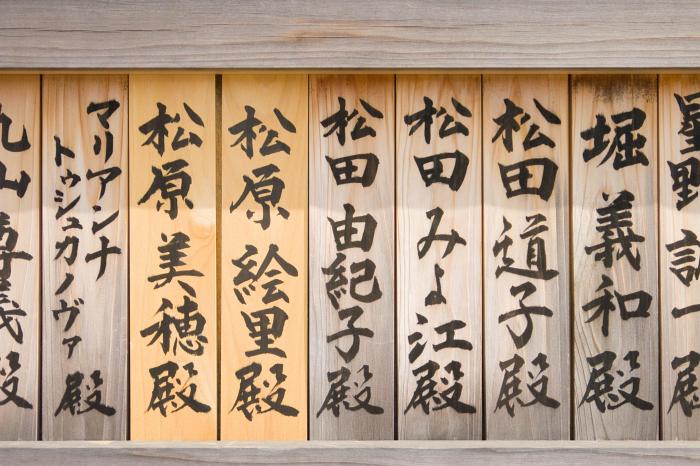 星野 殿
堀義和殿
松田道子殿
松田みよ江殿
松田由紀子殿
松原絵里殿
松原美穂殿
マリアンナ
トゥシュカノヴァ殿
丸山 義殿